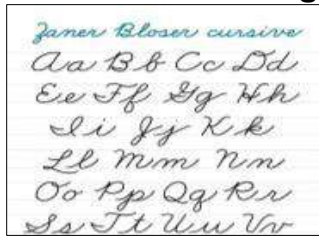 Zaner Bloser cursive
Aa Bb Cc Dd
Ee Ff Gg Hh
Ii Jj Kk
Ll Mm Nn
Oo Pp Qq Rr
Ss Tt Uu Vv